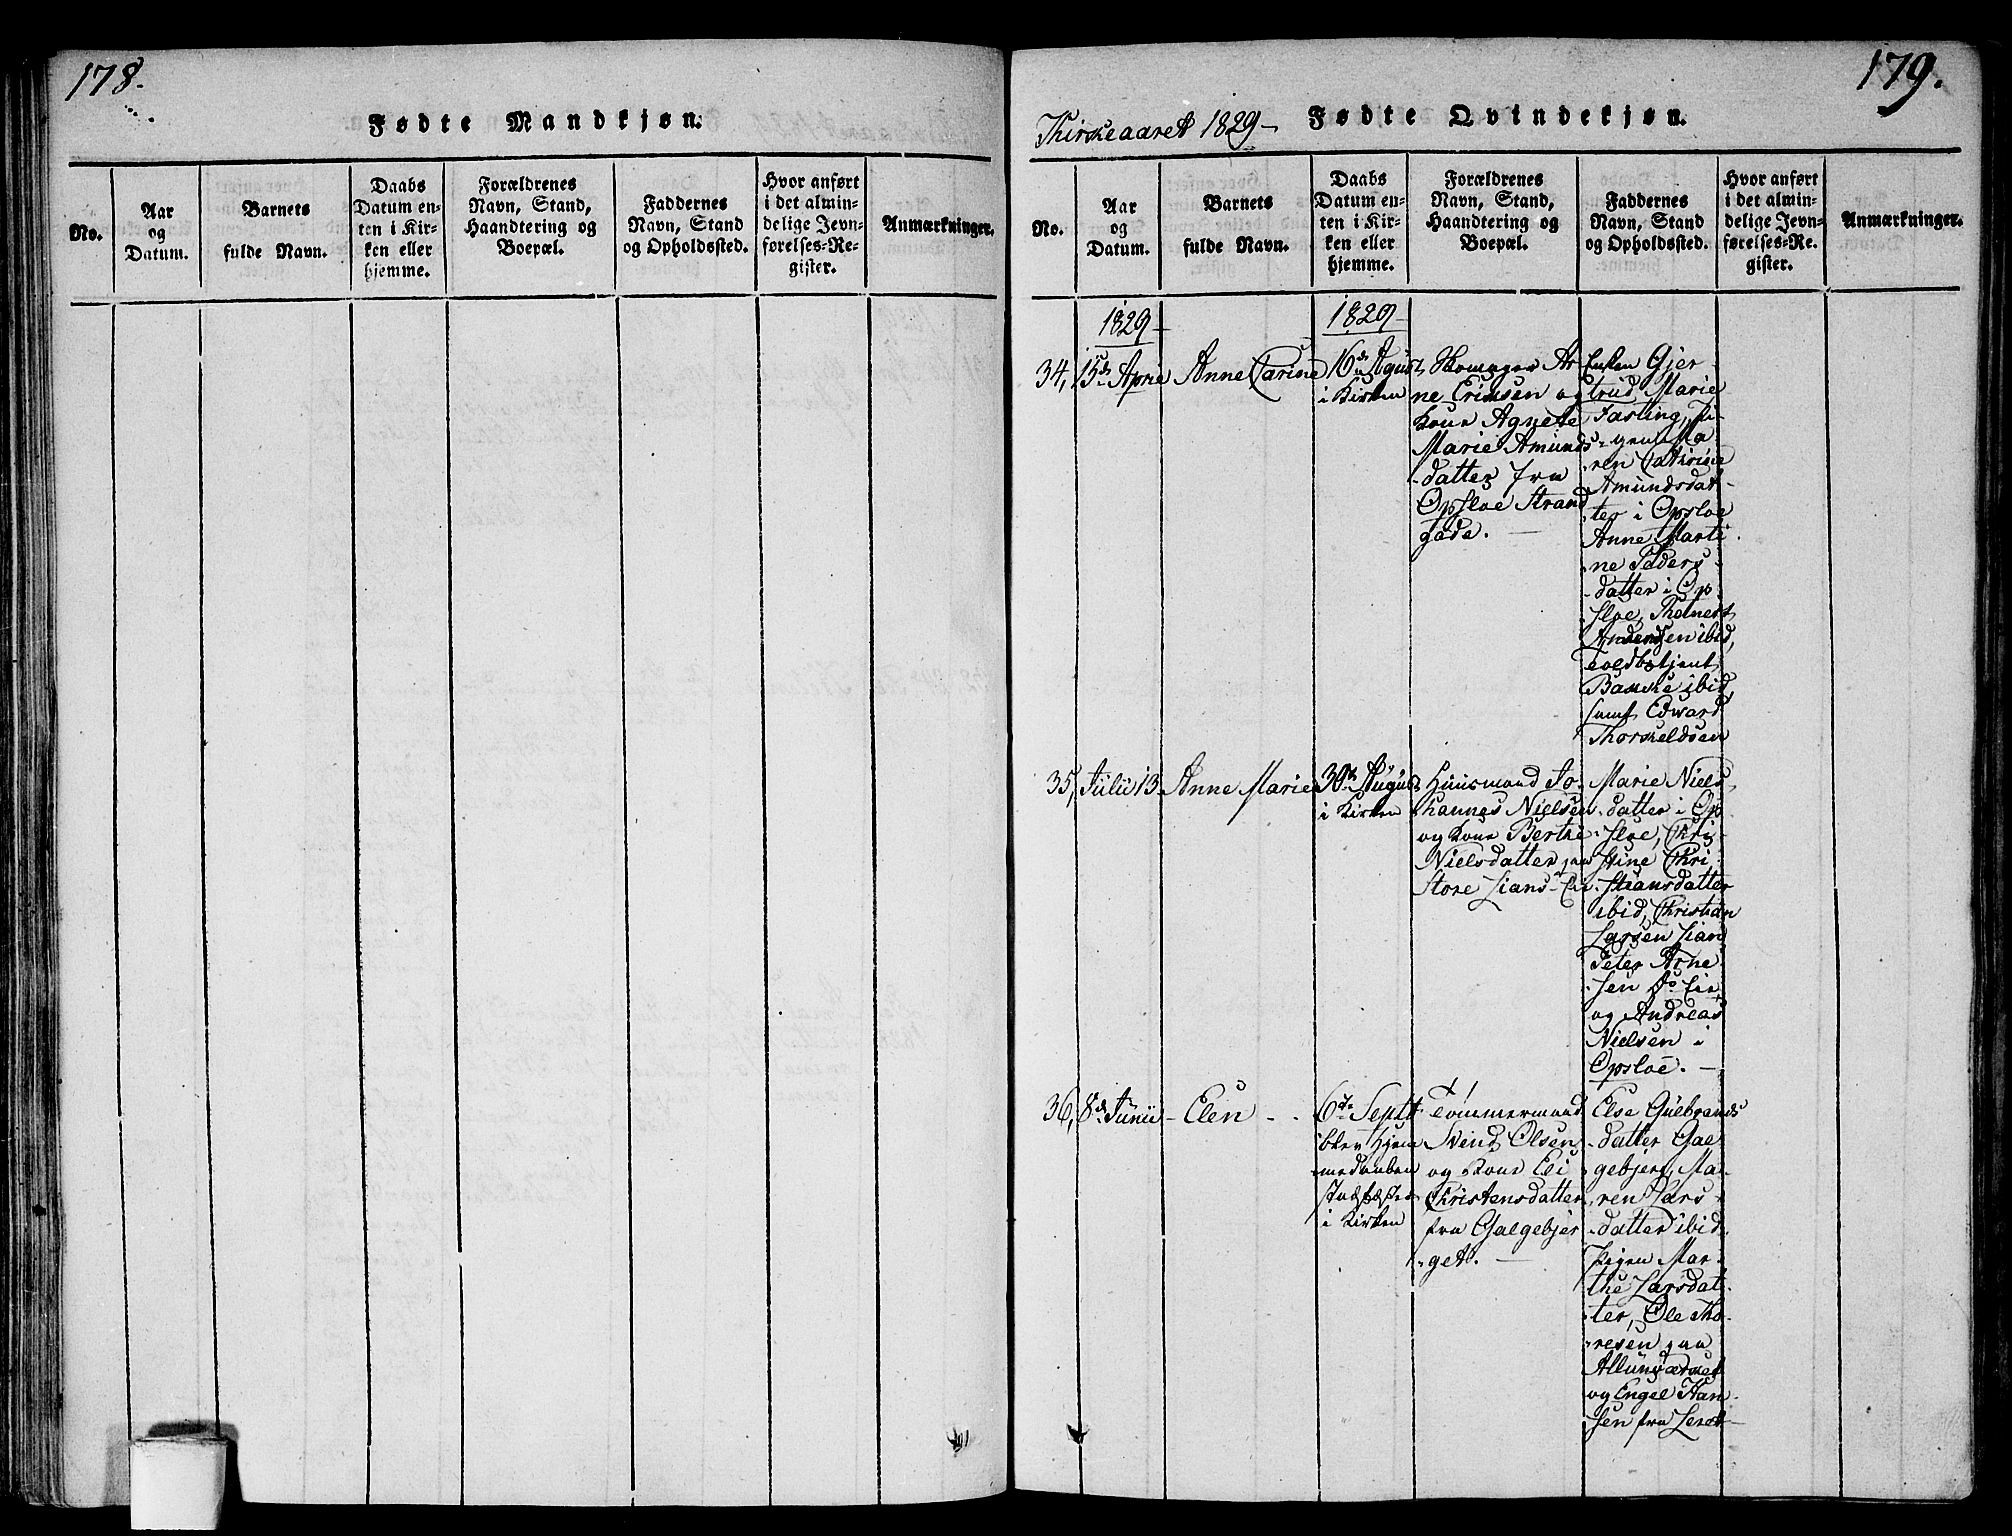 178.
Fødte Mandkjøn.
No.
Aar
og
Datum.
Barnets
fulde Navn.
Daabs
Datum en-
ten i Kir-
ken eller
hjemme.
Forældrenes
Navn, Stand,
Haandtering og
Boepæl.
Faddernes
Navn, Stand
og Opholdssted.
Hvor anført
i det almin-
delige Jevn-
førelses-Re-
gister.
Anmærkninger.
179.
Kirkeaaret 1829
Fødte Qvindekjøn.
No.
Aar
og
Datum.
Barnets
fulde Navn.
Daabs
Datum en-
ten i Kir-
ken eller
hjemme.
Forældrenes
Navn, Stand,
Haandtering og
Boepæl.
Faddernes
Navn, Stand
og Opholdssted.
Hvor anført
i det almin-
delige Jevn-
førelses-Re-
gister.
Anmærkninger.
1829
1829
34,
15de April
Anne Carine
16de August
i Kirken
Skomager Ar-
ne Ericksen og
Kone Agnete
Marie Amunds-
datter fra
Opsloe Strand
gade.
Enken Gjer-
trud Marie
Fasting, Pi-
gen Ma
ren Cathrine
Amundsdat-
ter i Opsloe
Anne Marti
ne Peders-
datter i Op
sloe,
Andersen ibid,
Toldbetjent
ibid,
samt Edward
Thorkeldsen
35,
Julii 13
Anne Marie
30te August
i Kirken
Huusmand Jo-
hannes Nielsen
og Kone Berthe
Nielsdatter paa
Store Lians Ei
Marie Niels
datter i Op
sloe, Chri-
stine Chri
stiansdatter
ibid, Christian
Larsen Lian
Peter Arne
sen Do Eie
og Andreas
Nielsen i
Opsloe.
36,
8de Junii
Elen
6te Septbr
blev Hjem
medaaben
stadfæstet
i Kirken
Tømmermand
Svend Olsen
og Kone Eli
Christensdatter
fra Galgebjer
get.
Else Gulbrands
datter Gal
gebjerg, Ma-
ren Lars
datter ibid
Pigen Mar-
the Larsdat-
ter, Ole Tho-
resen paa
Allunværket
og Engel Han-
sen fra